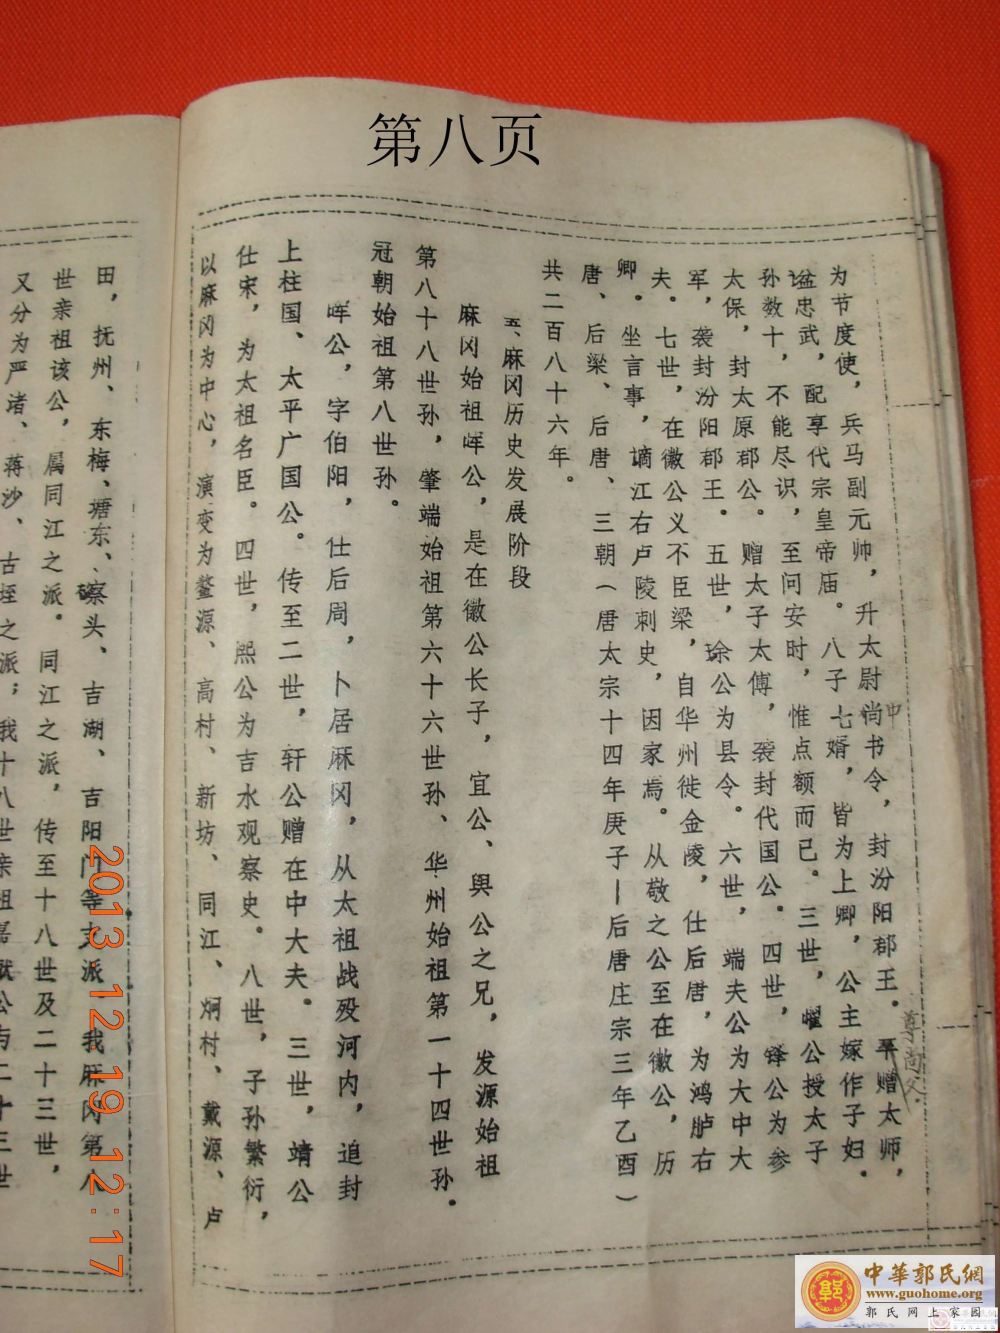 第八页
为节度使，兵马副元帅，升太尉尚书令，封汾阳郡王。平赠太师，
中
尊尚父
谥忠武，配享代宗皇帝庙。八子七婿，皆为上卿，公主嫁作子妇。
孙数十，不能尽识，至问安时，惟点额而已。三世，曜公授太子
太保，封太原郡公。赠太子太傅，袭封代国公。四世，锋公为参
军，袭封汾阳郡王。五世，琮公为县令。六世，端夫公为大中大
夫。七世，在徽公义不臣梁，自华州徙金陵，仕后唐，为鸿胪右
卿。坐言事，谪江右卢陵刺史，因家焉。从敬之公至在徽公，历
唐、后梁、后唐、三朝（唐太宗十四年庚子—后唐庄宗三年乙酉）
共二百八十六年。
五、麻冈历史发展阶段
麻冈始祖晖公，是在徽公长子，宜公、舆公之兄，发源始祖
第八十八世孙，肇端始祖第六十六世孙、华州始祖第一十四世孙.
冠朝始祖第八世孙。
晖公，字伯阳，仕后周，卜居麻冈，从太祖战殁河内，追封
上柱国、太平广国公。传至二世，轩公赠在中大夫。三世，靖公
仕宋，为太祖名臣。四世，熙公为吉水观察史。八世，子孙繁衍，
以麻冈为中心，演变为鳌源、高村、新坊、同江、炯村、戴源、卢
田，抚州、东梅、塘东、寮头、吉湖、吉阳门等支派，我麻冈第八
世亲祖该公，属同江之派。同江之派，传至十八世及二十三世，
又分为严渚、蒋沙、古垤之派；我十八世亲祖嘉猷公与二十三世
2013.12.19 12:17
郭
中華郭氏網
www.guohome.org
郭氏网上家园